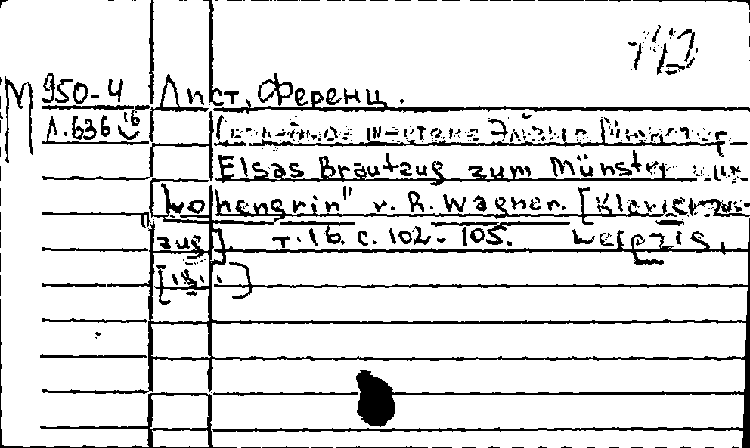 М 950-4 Лист, Ференц.
Л.636 16 шествие Эльзы Мюнстер
Elsas Brautzug zum Münster aus
"Lohengrin" v. R. Wagner. [Klavieraus-
zug]. т.16. с.102-105. Leipzig,